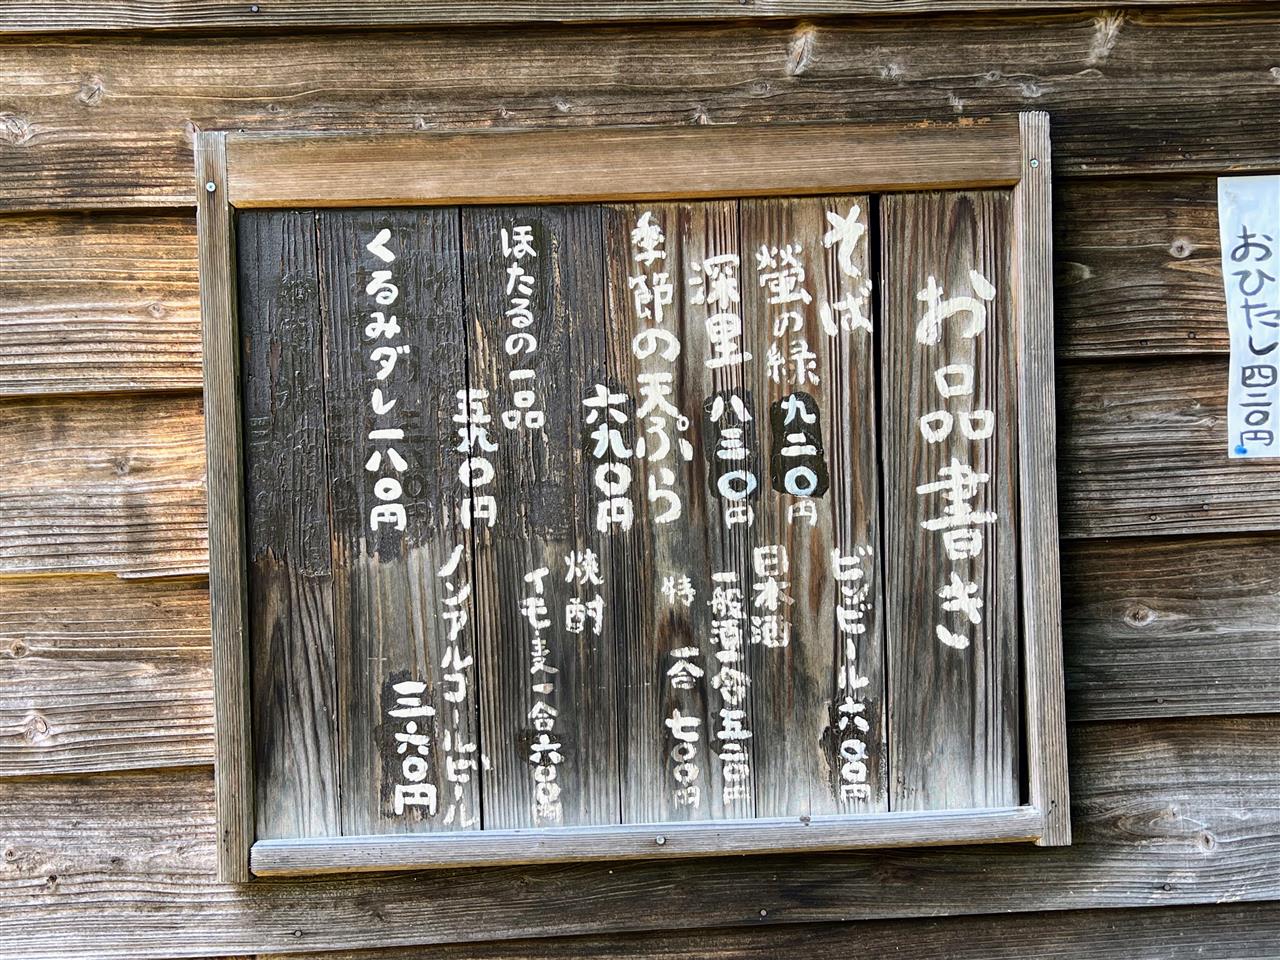 お品書き
そば
螢の緑 九二〇円
深里 八三〇円
季節の天ぷら
六九〇円
ほたるの一品
五九〇円
くるみダレ 一八〇円
ビンビール 六八〇円
日本酒
一般酒 一合 五二〇円
特 一合 七〇〇円
焼酎
イモ・麦 一合 六〇〇円
ノンアルコールビール
三六〇円
おひたし 四二〇円